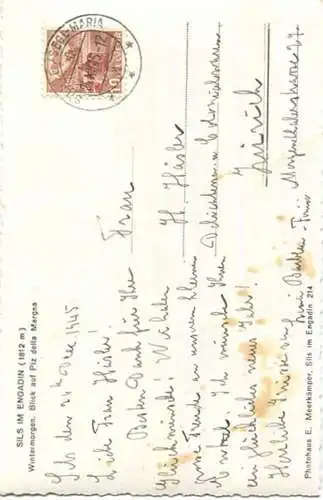 SILS IM ENGADIN (1812 m)
Wintermorgen. Blick auf Piz della Margna
Sils den 24. Dez. 1945
Liebe Frau Häsler!
Besten Dank für Ihre
Glückwünsche! Wir haben
Freude an unserem kleinen
Ich wünsche Ihnen
ein glückliches neues Jahr!
Herzliche Grüsse von
Photohaus E. Meerkämper, Sils im Engadin 214
SILS-SEGL MARIA
Frau
H. Häsler
Zürich